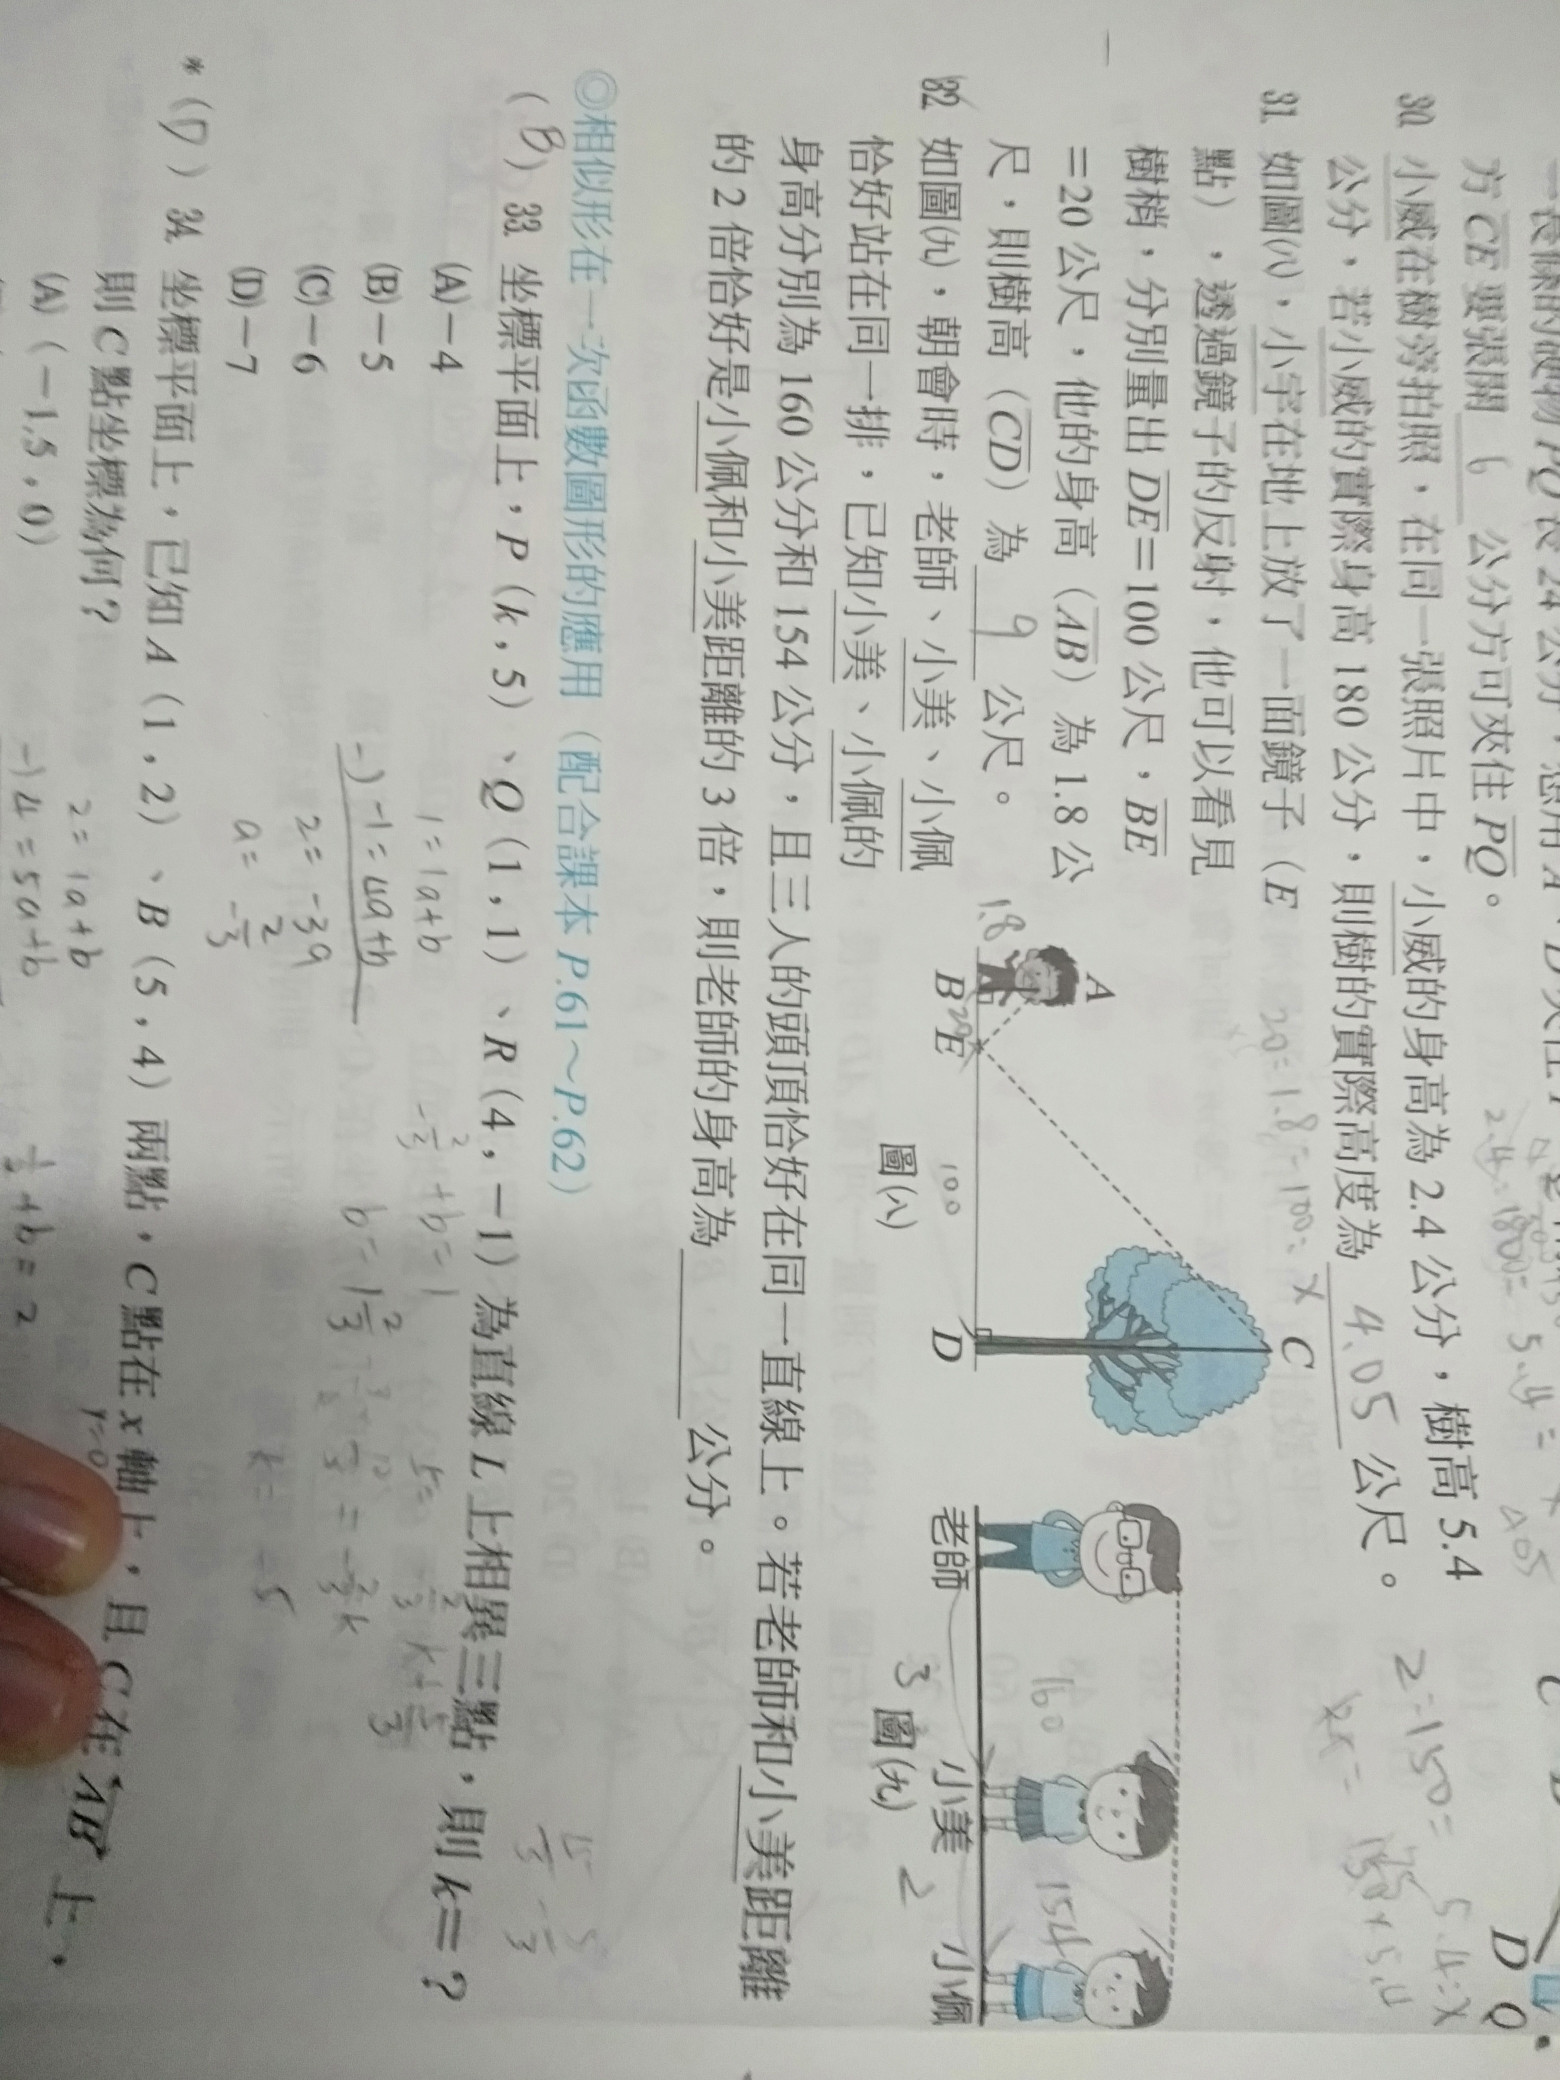 方 CE 要張開 6 公分方可夾住 PQ。
30. 小威在樹旁拍照，在同一張照片中，小威的身高為 2.4 公分，樹高 5.4
公分，若小威的實際身高 180 公分，則樹的實際高度為 4.05 公尺。
31. 如圖(八)，小宇在地上放了一面鏡子（E
點），透過鏡子的反射，他可以看見
樹梢，分別量出 DE=100 公尺，BE
=20 公尺，他的身高（AB）為 1.8 公
尺，則樹高（CD）為 9 公尺。
A
B
E
C
D
1.8
100
圖(八)
32. 如圖(九)，朝會時，老師、小美、小佩
恰好站在同一排，已知小美、小佩的
身高分別為 160 公分和 154 公分，且三人的頭頂恰好在同一直線上。若老師和小美距離
的 2 倍恰好是小佩和小美距離的 3 倍，則老師的身高為 公分。
160
154
老師 小美 小佩
3
2
圖(九)
◎相似形在一次函數圖形的應用（配合課本 P.61～P.62）
（B）33. 坐標平面上，P（k , 5）、Q（1 , 1）、R（4 , －1）為直線 L 上相異三點，則 k＝？
(A)－4
(B)－5
(C)－6
(D)－7
1=1a+b
-)-1=4a+b
k=-5
*（D）34. 坐標平面上，已知 A（1 , 2）、B（5 , 4）兩點，C 點在 x 軸上，且 C 在 AB 上，
則 C 點坐標為何？
y=0
(A)（－1.5 , 0）
2=1a+b
-)4=5a+b